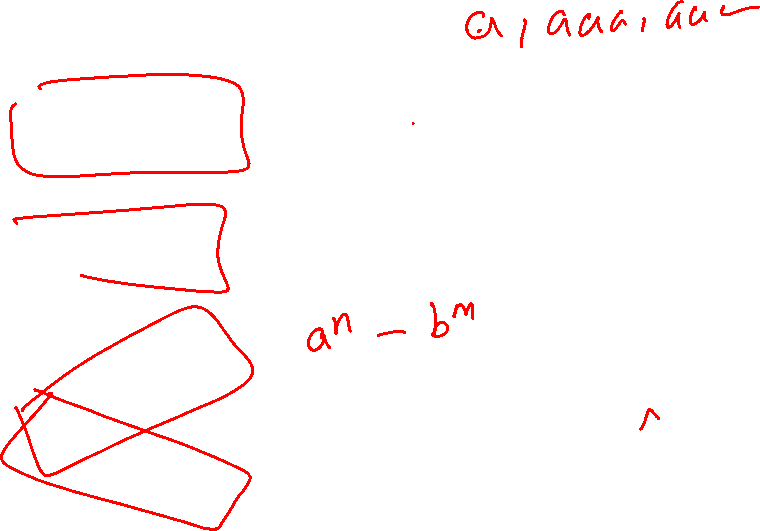 a, aaa, aa
aⁿ - bᵐ
^